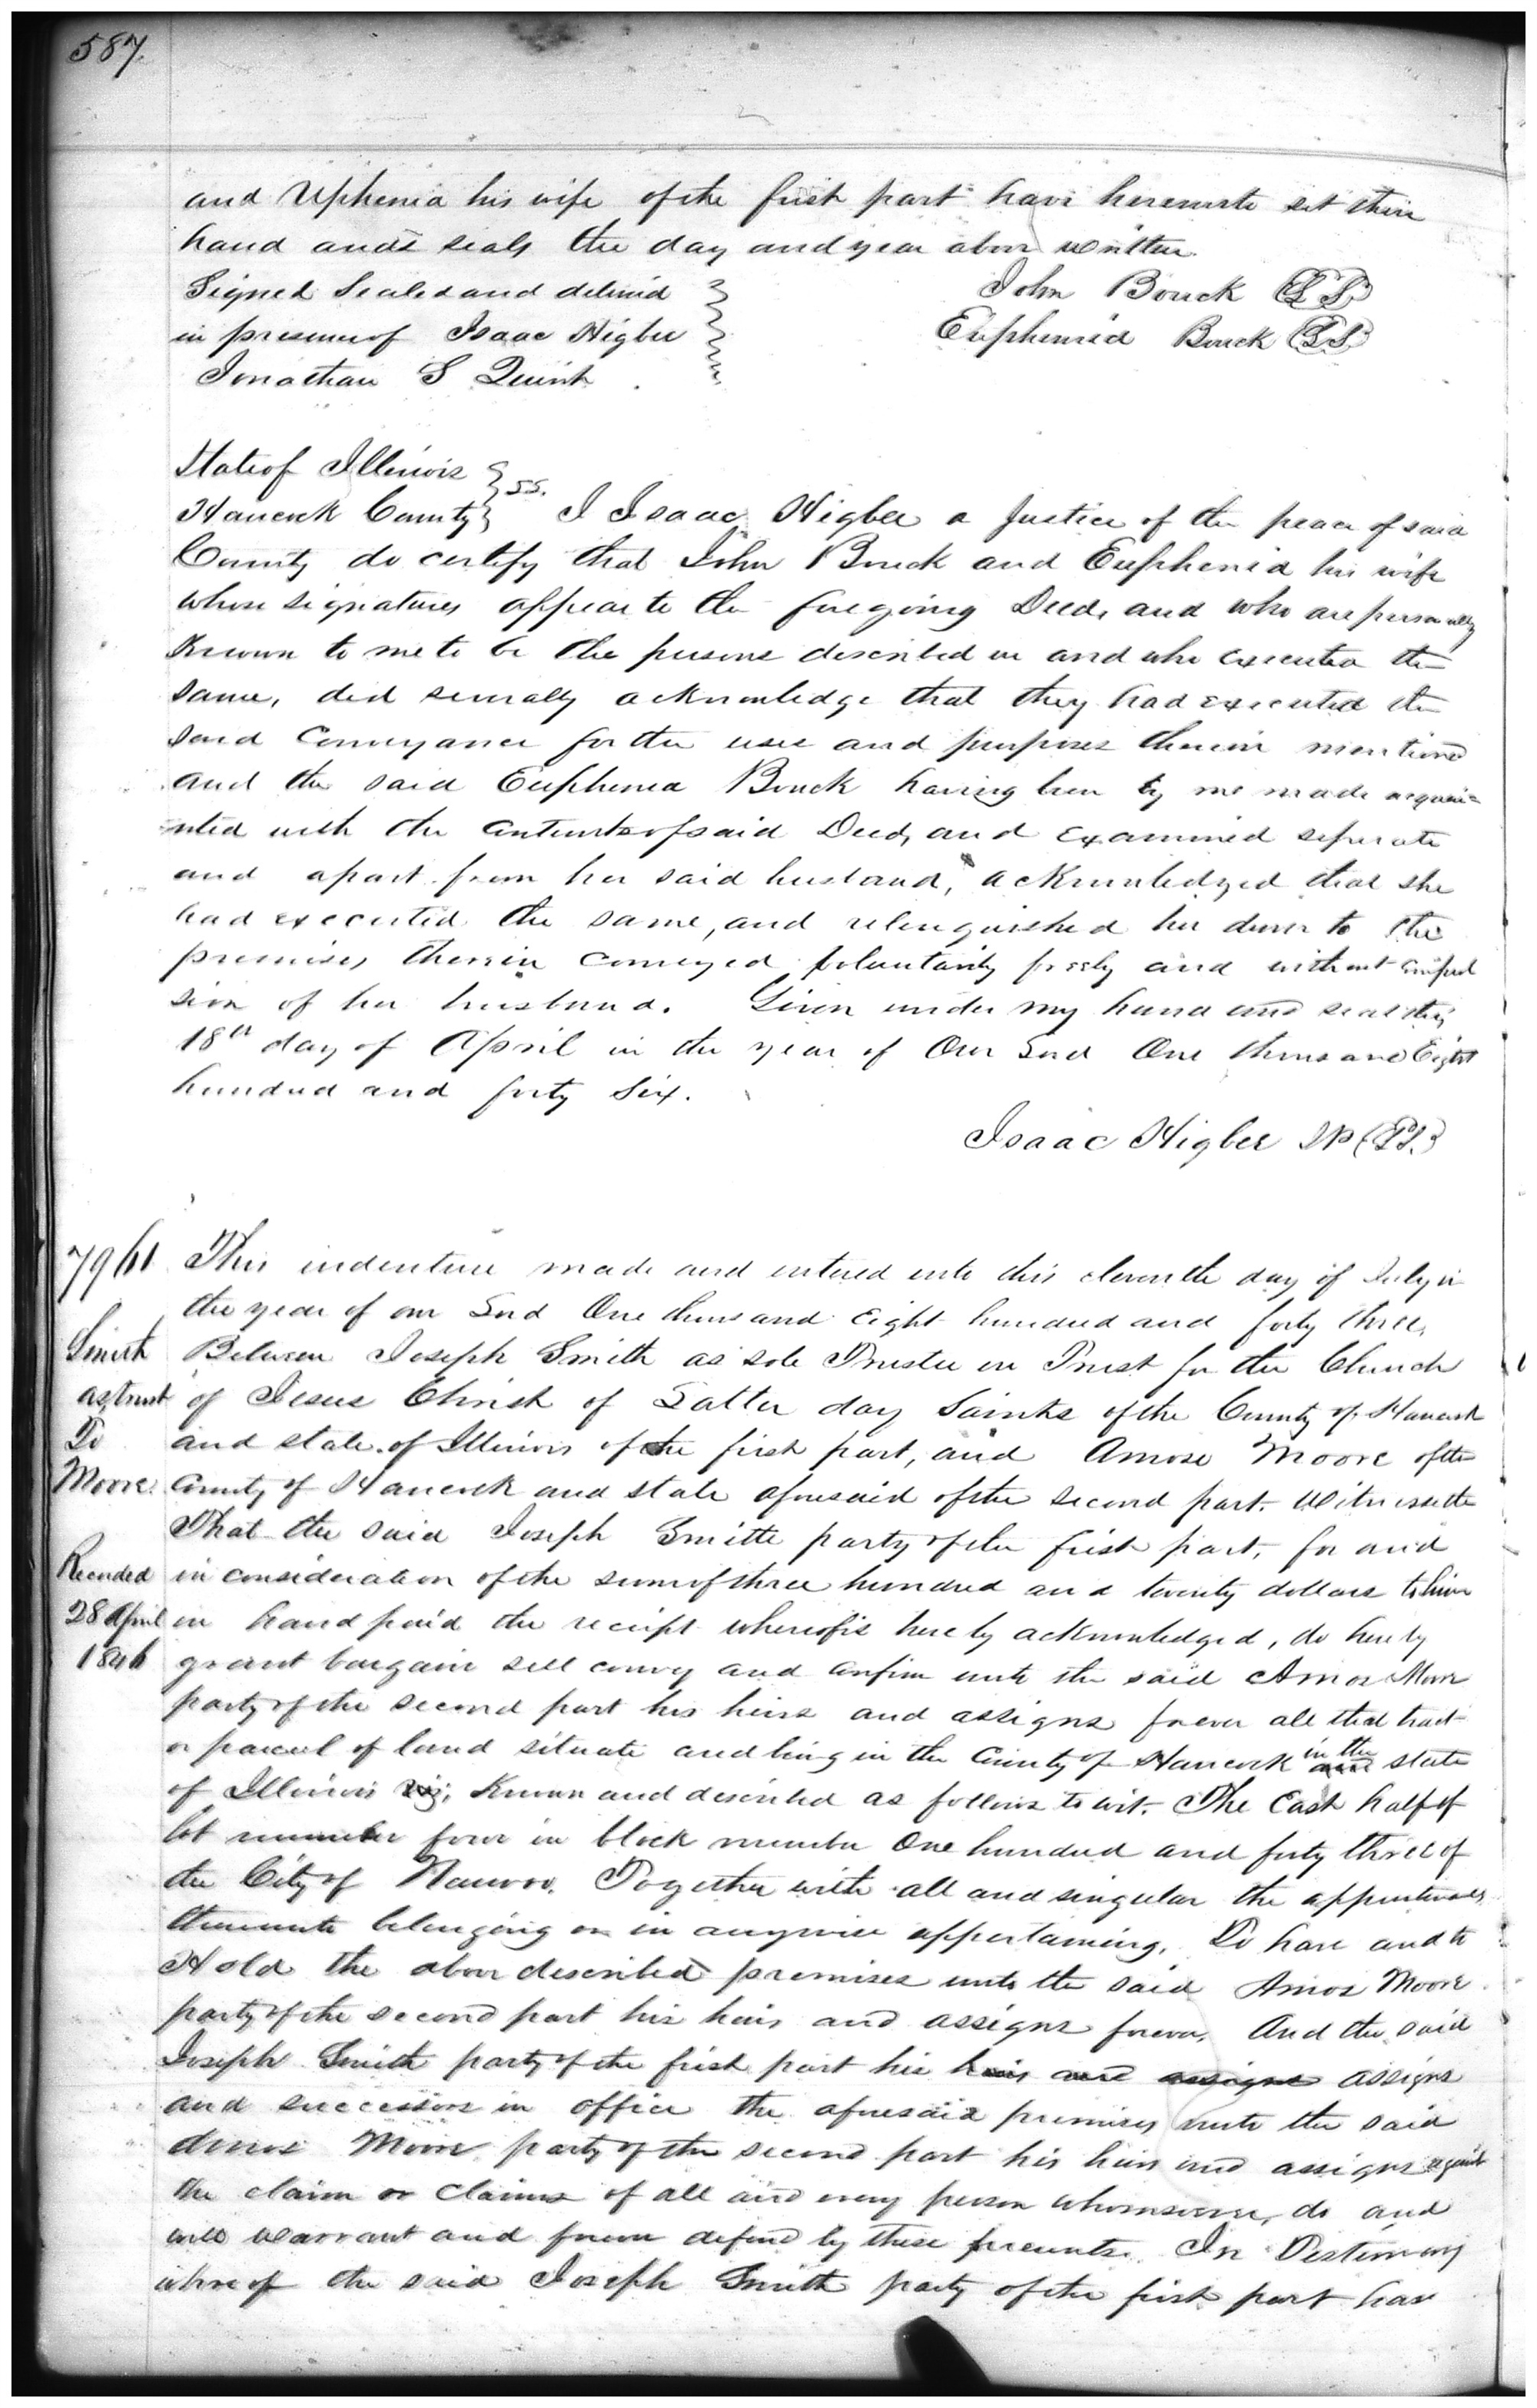 587.
and Uphenia his wife of the first part have hereunto set their
hand and seals the day and year above written.
Signed Sealed and delivrid John Bouck (L S)
in presence of Isaac Higbee Euphemia Bouck (L S)
Jonathan S
State of Illinois
Hancock County } SS. I Isaac Higbee a Justice of the peace of said
County do certify that John Bouck and Euphenia his wife
whose signatures appear to the foregoing Deed, and who are personally
Known to me to be the persons described in and who executed the
same, did severally acknowledge that they had executed the
said Conveyance for the uses and purposes therein mentioned
and the said Euphenia Bouck having been by me made acquai=
nted with the contents of said Deed, and examined seperate
and apart from her said husband, acknowledged that she
had executed the same, and relinquished her dower to the
premises therein conveyed voluntarily freely and without compul
sion of her husband. Given under my hand and seal this
18th day of April in the year of Our Lord One thousand Eight
hundred and forty Six.
Isaac Higbee JP (L S.)
7961 This indenture made and entered into this eleventh day of July in
the year of our Lord One thousand Eight hundred and forty three,
Smith Between Joseph Smith as sole Trustee in Trust for the Church
as, trust of Jesus Christ of Latter day Saints of the County of Hancock
To and state of Illinois of the first part, and Amose Moore of the
Moore. County of Hancock and state aforesaid of the second part. Witnesseth
That the said Joseph Smith party of the first part, for and
Recorded in consideration of the sum of three hundred and twenty dollars to him
28 April in hand paid the receipt whereof is hereby acknowledged, do hereby
1846 grant bargain sell convey and confirm unto the said Amos Moore
party of the second part his heirs and assigns forever all that tract
or parcel of land situate and being in the County of Hancock in the state
of Illinois Known and described as follows to wit. The East half of
lot number four in block number One hundred and forty three of
the City of Nauvoo. Together with all and singular the appurtenances
thereunto belonging or in anywise appertaining, To have and to
Hold the above described premises unto the said Amos Moore
party of the second part his heirs and assigns forever. And the said
Joseph Smith party of the first part his heirs and assigns assigns
and successors in office the aforesaid premises unto the said
Amos Moore party of the second part his heirs and assigns against
the claim or claims of all and every person whomsoever, do and
will warrant and forever defend by these presents. In Testimony
whereof the said Joseph Smith party of the first part has